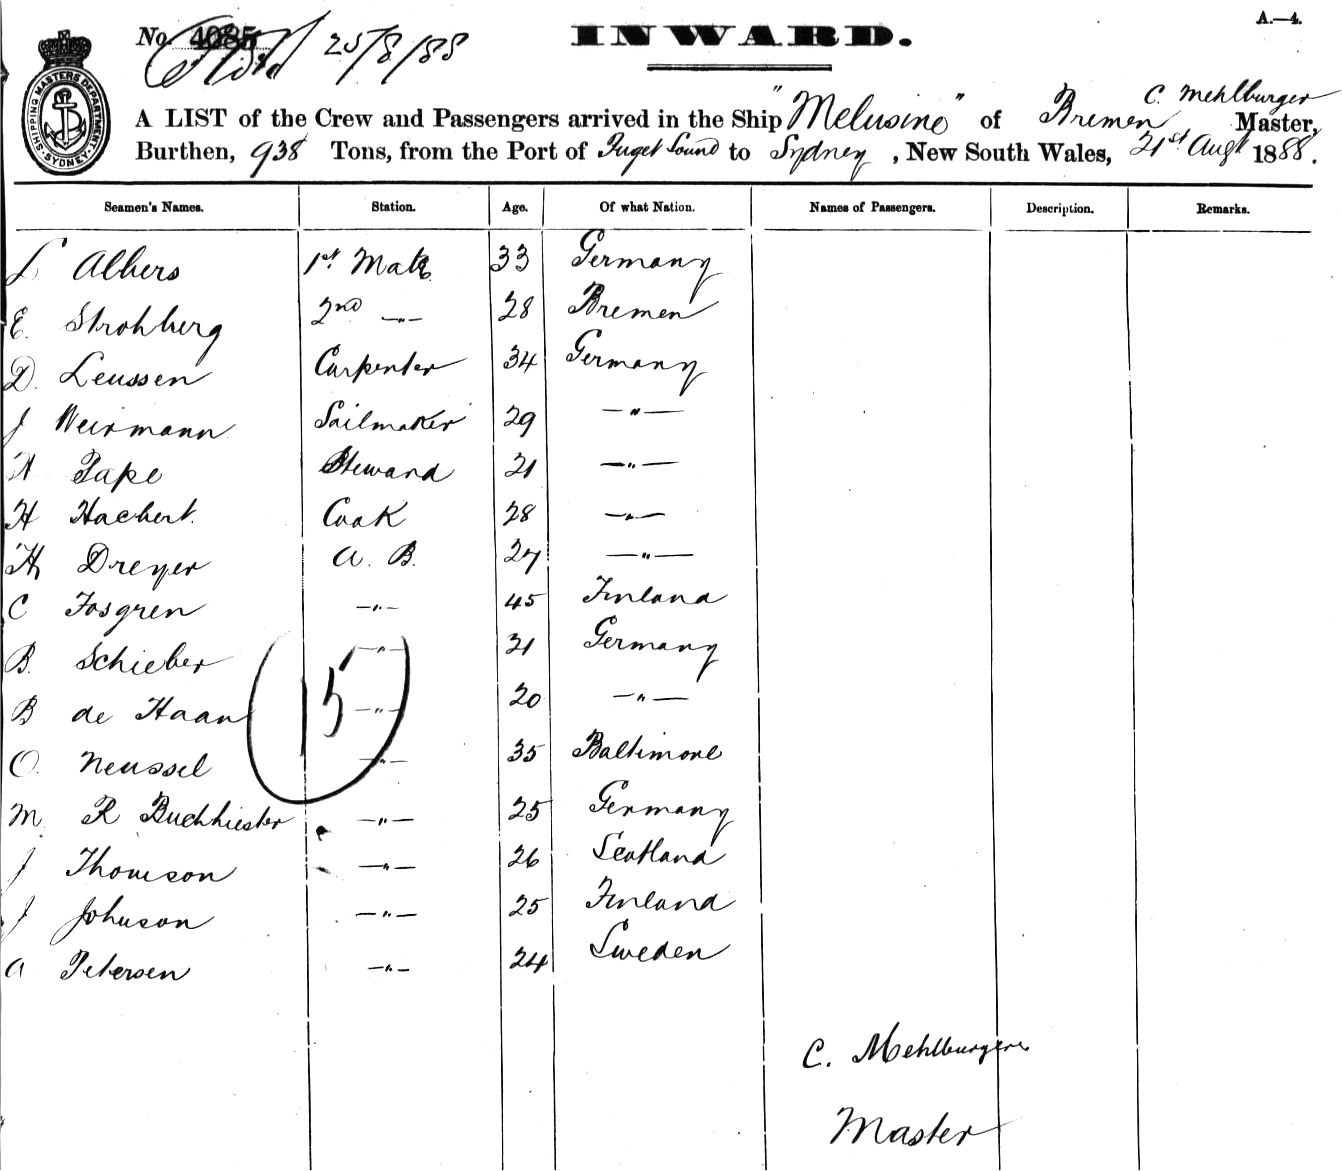 A.—4.
No. 4085 25/8/88
INWARD.
SHIPPING MASTERS DEPARTMENT. SYDNEY.
C. Mehlburger
A LIST of the Crew and Passengers arrived in the Ship "Melusine" of Bremen Master,
Burthen, 938 Tons, from the Port of Puget Sound to Sydney, New South Wales, 21st Augt 1888.
Seamen's Names. Station. Age. Of what Nation. Names of Passengers. Description. Remarks.
L Albers 1st Mate 33 Germany
E. Strohberg 2nd —"— 28 Bremen
D. Leussen Carpenter 34 Germany
J Weirmann Sailmaker 29 —"—
H Pape Steward 21 —"—
H Hachert. Cook 28 —"—
H Dreyer A. B. 27 —"—
C Fosgren —"— 45 Finland
B. Schieber —"— 21 Germany
B de Haan —"— 20 —"—
15
O. Neussel —"— 35 Baltimore
M R Buchhiester —"— 25 Germany
J Thomson —"— 26 Scotland
J Johnson —"— 25 Finland
A Petersen —"— 24 Sweden
C. Mehlburger
Master